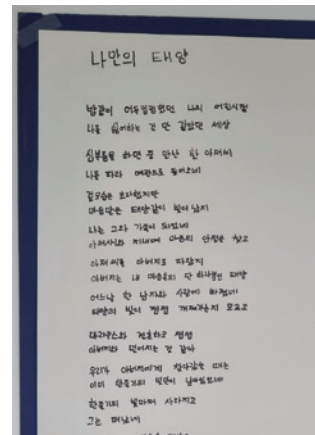 나만의 태양
밤같이 어두컴컴했던 나의 어린시절
나를 싫어하는 것만 같았던 세상
심부름을 하던 중 만난 한 아재비
나를 따라 여관으로 들어오네
겉모습은 초라했지만
마음만은 태양같이 빛이 났지
나는 그와 가족이 되었네
아저씨와 지내며 마음의 안정을 찾고
아재비를 아버지로 따랐지
아버지는 내 마음속의 단 하나뿐인 태양
어느날 한 남자와 사랑에 빠졌네
태양의 빛이 점점 꺼져가는지 모르고
결혼하고 점점
아버지와 멀어지는 것 같아
우리가 아버지에게 찾아갔을 때는
이미 한줄기의 빛만이 남아있었네
한줄기의 빛마저 사라지고
그는 떠났네